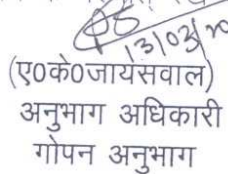 13/03/20
(ए0के0जायसवाल)
अनुभाग अधिकारी
गोपन अनुभाग